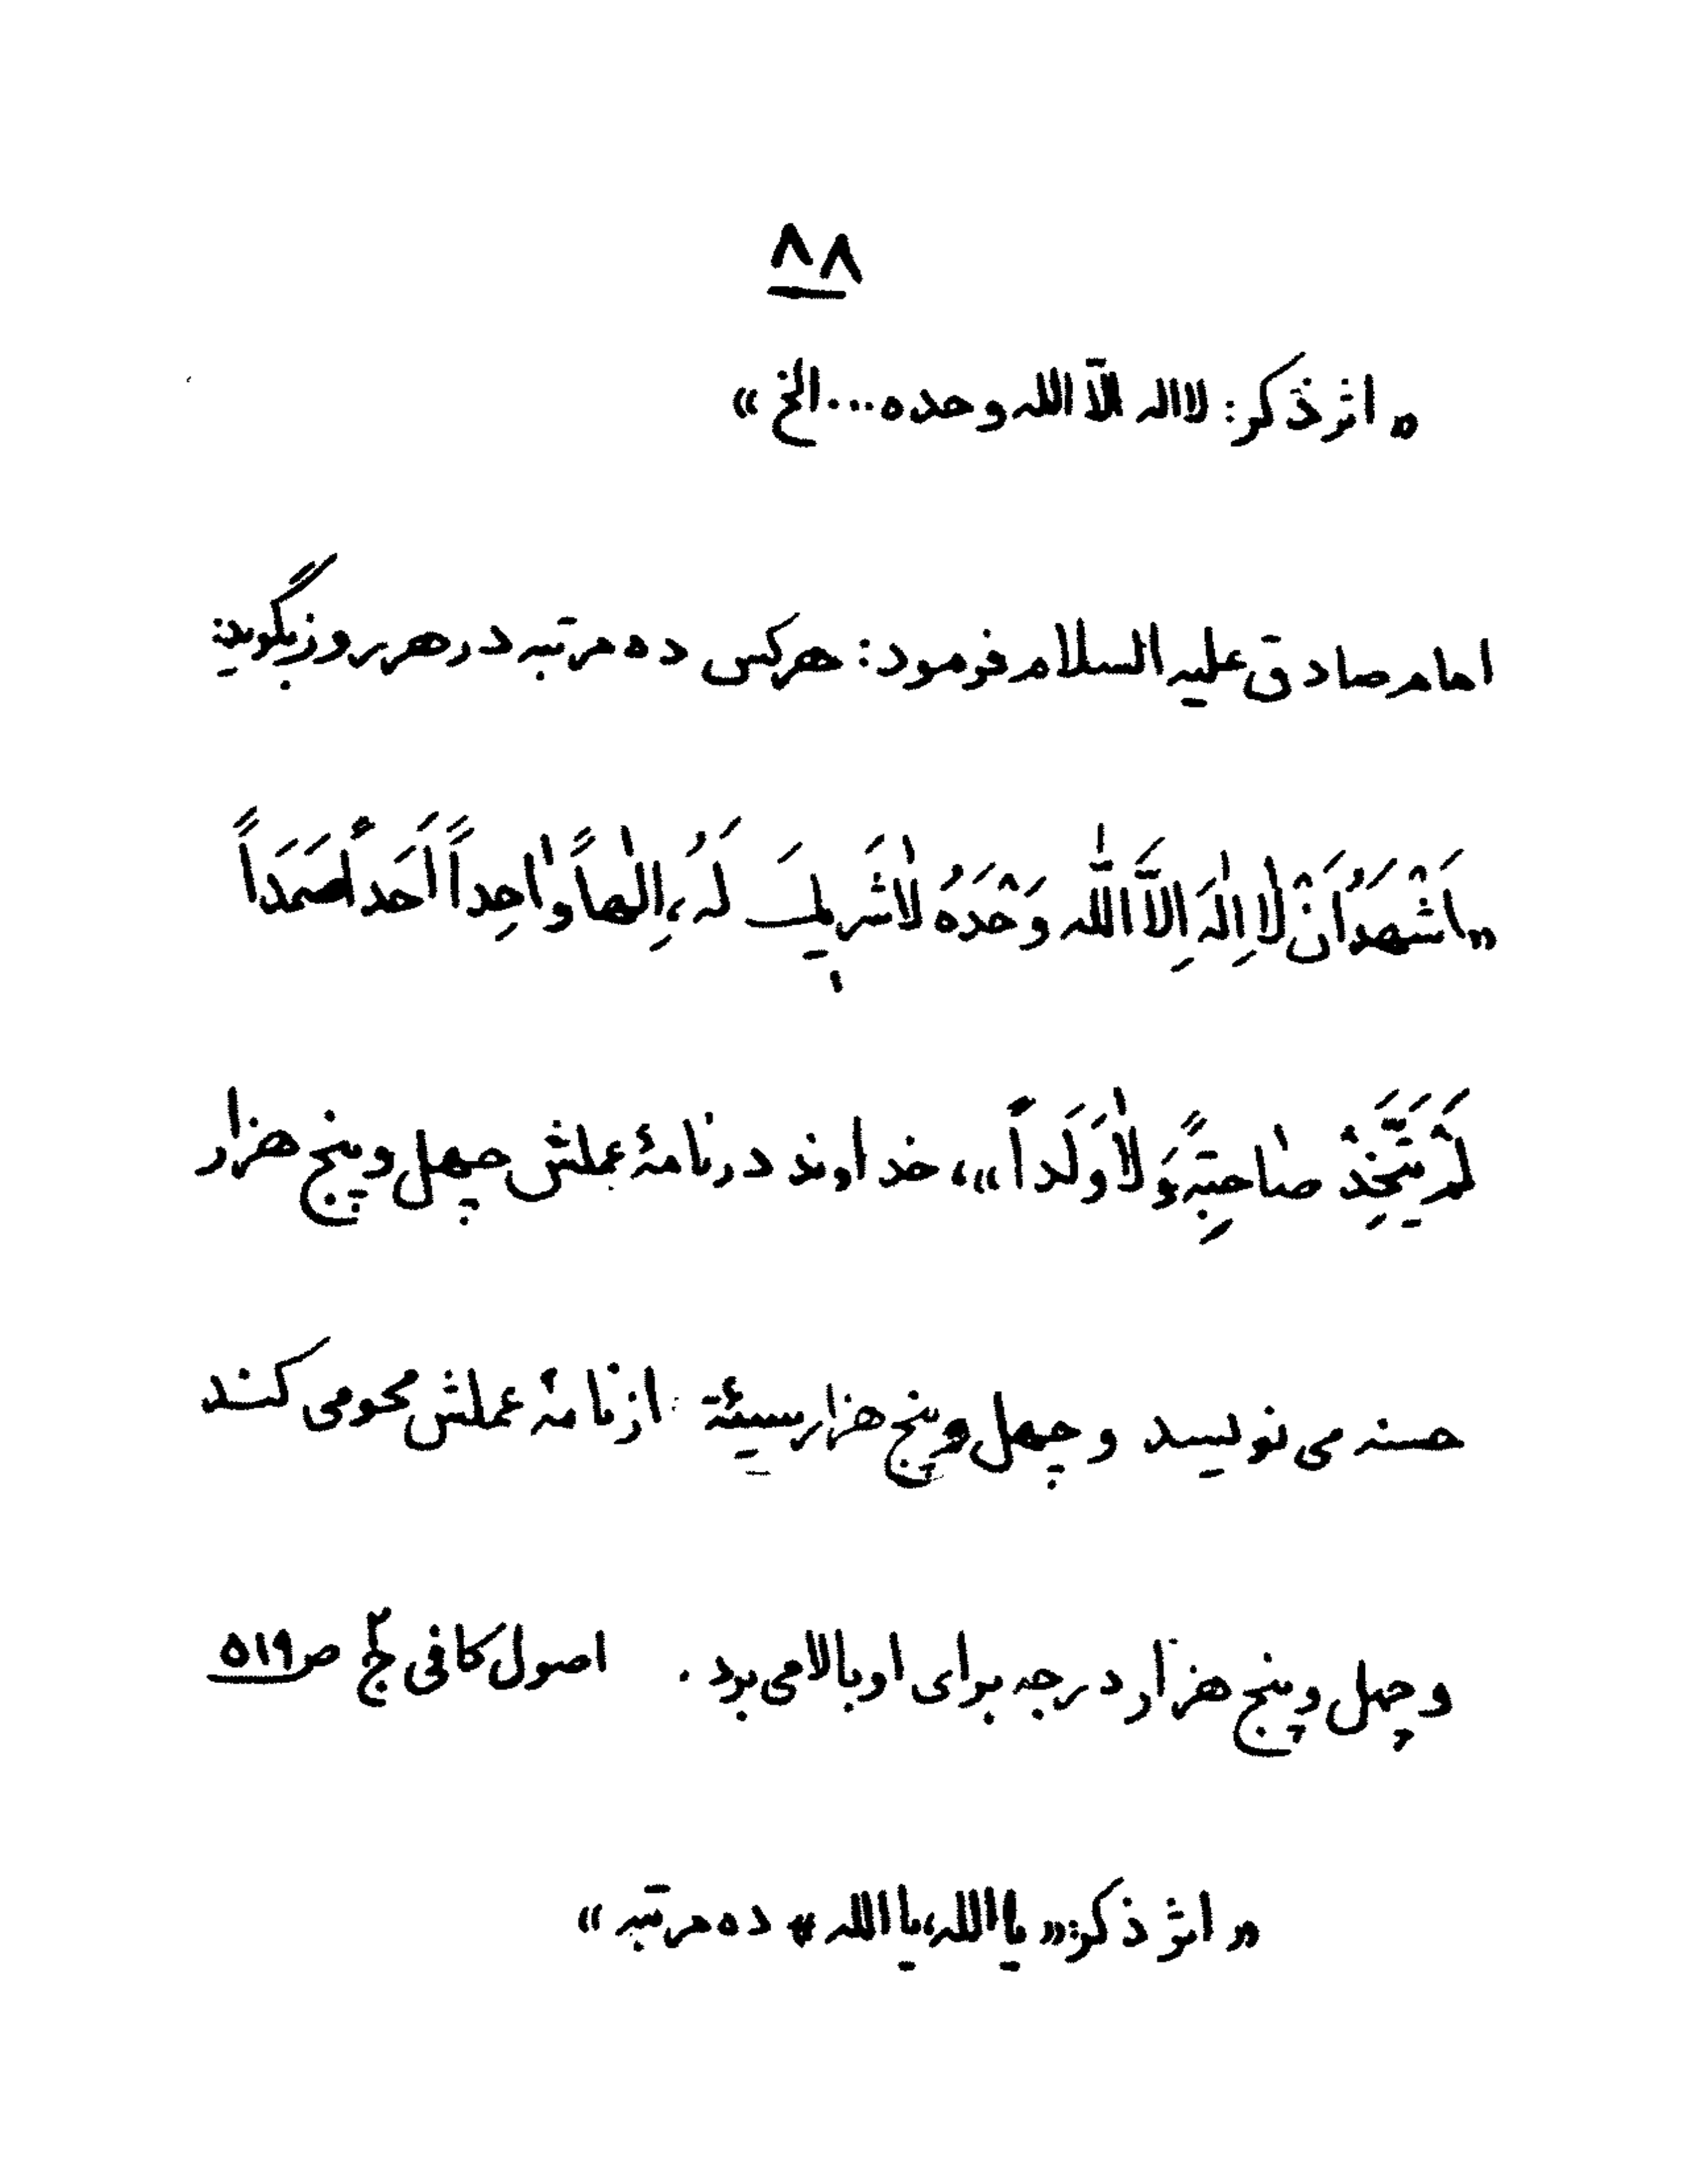 ۸۸
« اثر ذکر: لا اله الاّ الله وحده ... الخ »
امام صادق علیه السلام فرمود: هرکس ده مرتبه در هر روز بگوید:
«اَشْهَدُ اَنْ لٰا اِلٰهَ اِلاَّ اللّٰه وَحْدَهُ لٰا شَریکَ لَهُ، اِلٰهاً وٰاحِداً اَحَداً صَمَداً
لَمْ یَتَّخِذْ صٰاحِبَةً وَ لٰا وَلَداً»، خداوند در نامهٔ عملش چهل و پنج هزار
حسنه می نویسد و چهل و پنج هزار سیئة از نامهٔ عملش محو می کند
و چهل و پنج هزار درجه برای او بالا می برد. اصول کافی ج۲ ص ۵۱۹
« اثر ذکر: «یا الله، یا الله» ده مرتبه »